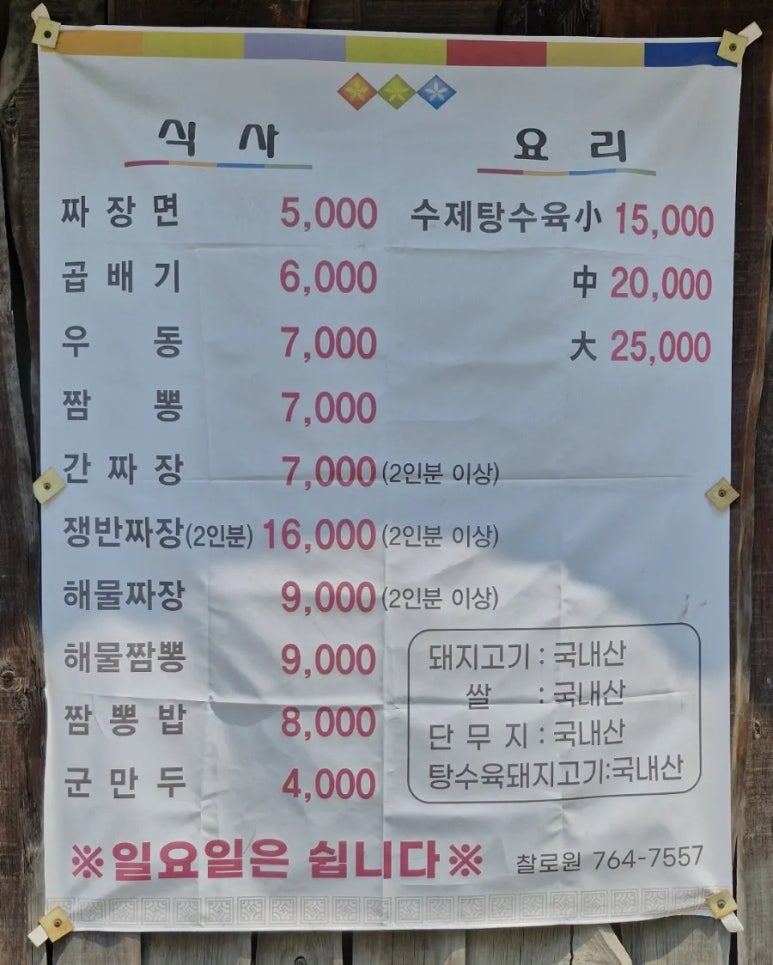 식 사
짜장면 5,000
곱배기 6,000
우동 7,000
짬뽕 7,000
간짜장 7,000 (2인분 이상)
쟁반짜장(2인분) 16,000 (2인분 이상)
해물짜장 9,000 (2인분 이상)
해물짬뽕 9,000
짬뽕밥 8,000
군만두 4,000
요 리
수제탕수육小 15,000
中 20,000
大 25,000
돼지고기 : 국내산
쌀 : 국내산
단무지 : 국내산
탕수육돼지고기:국내산
※일요일은 쉽니다※
찰로원 764-7557